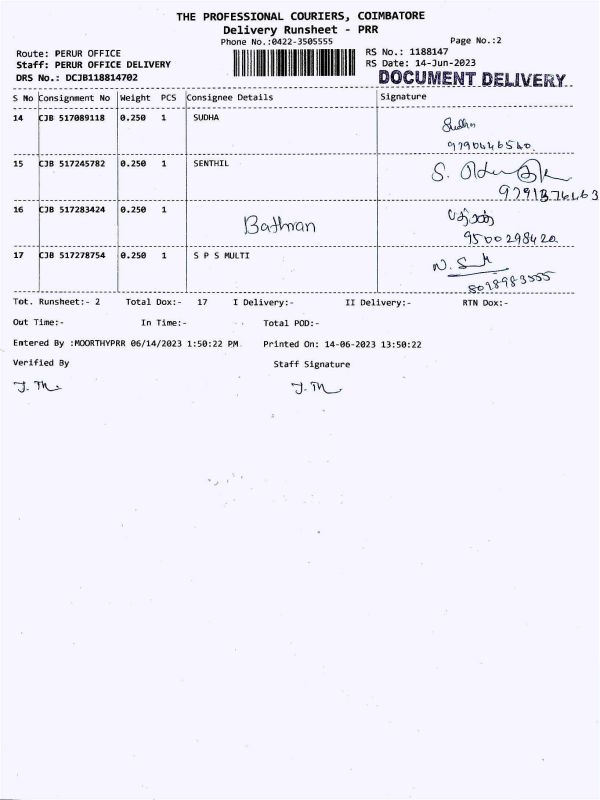 THE PROFESSIONAL COURIERS, COIMBATORE
Delivery Runsheet - PRR
Phone No.:0422-3505555
Page No.:2
Route: PERUR OFFICE
RS No.: 1188147
Staff: PERUR OFFICE DELIVERY
RS Date: 14-Jun-2023
DRS No.: DCJB118814702
DOCUMENT DELIVERY
S No Consignment No Weight PCS Consignee Details Signature
14 CJB 517089118 0.250 1 SUDHA Sudha
9790446540
15 CJB 517245782 0.250 1 SENTHIL S.
16 CJB 517283424 0.250 1 Bathran
9500298420
17 CJB 517278754 0.250 1 S P S MULTI N.
8098983555
Tot. Runsheet:- 2 Total Dox:- 17 I Delivery:- II Delivery:- RTN Dox:-
Out Time:- In Time:- Total POD:-
Entered By :MOORTHYPRR 06/14/2023 1:50:22 PM Printed On: 14-06-2023 13:50:22
Verified By Staff Signature